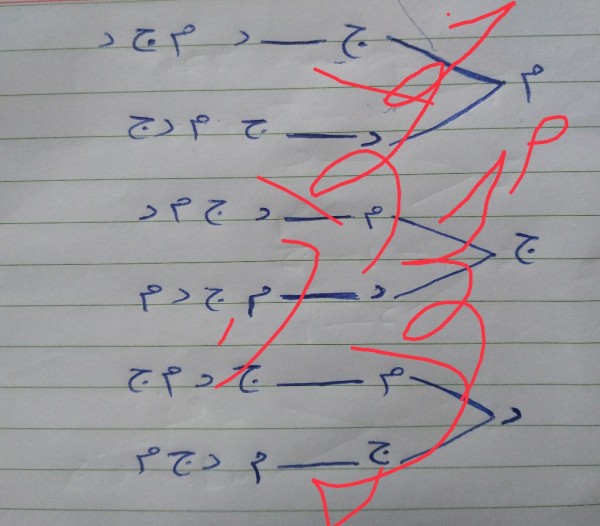 ج — د م ج د
م
د — ج م د ج
م — د ج م د
ج
د — م ج د م
م — ج د م ج
د
ج — م د ج م